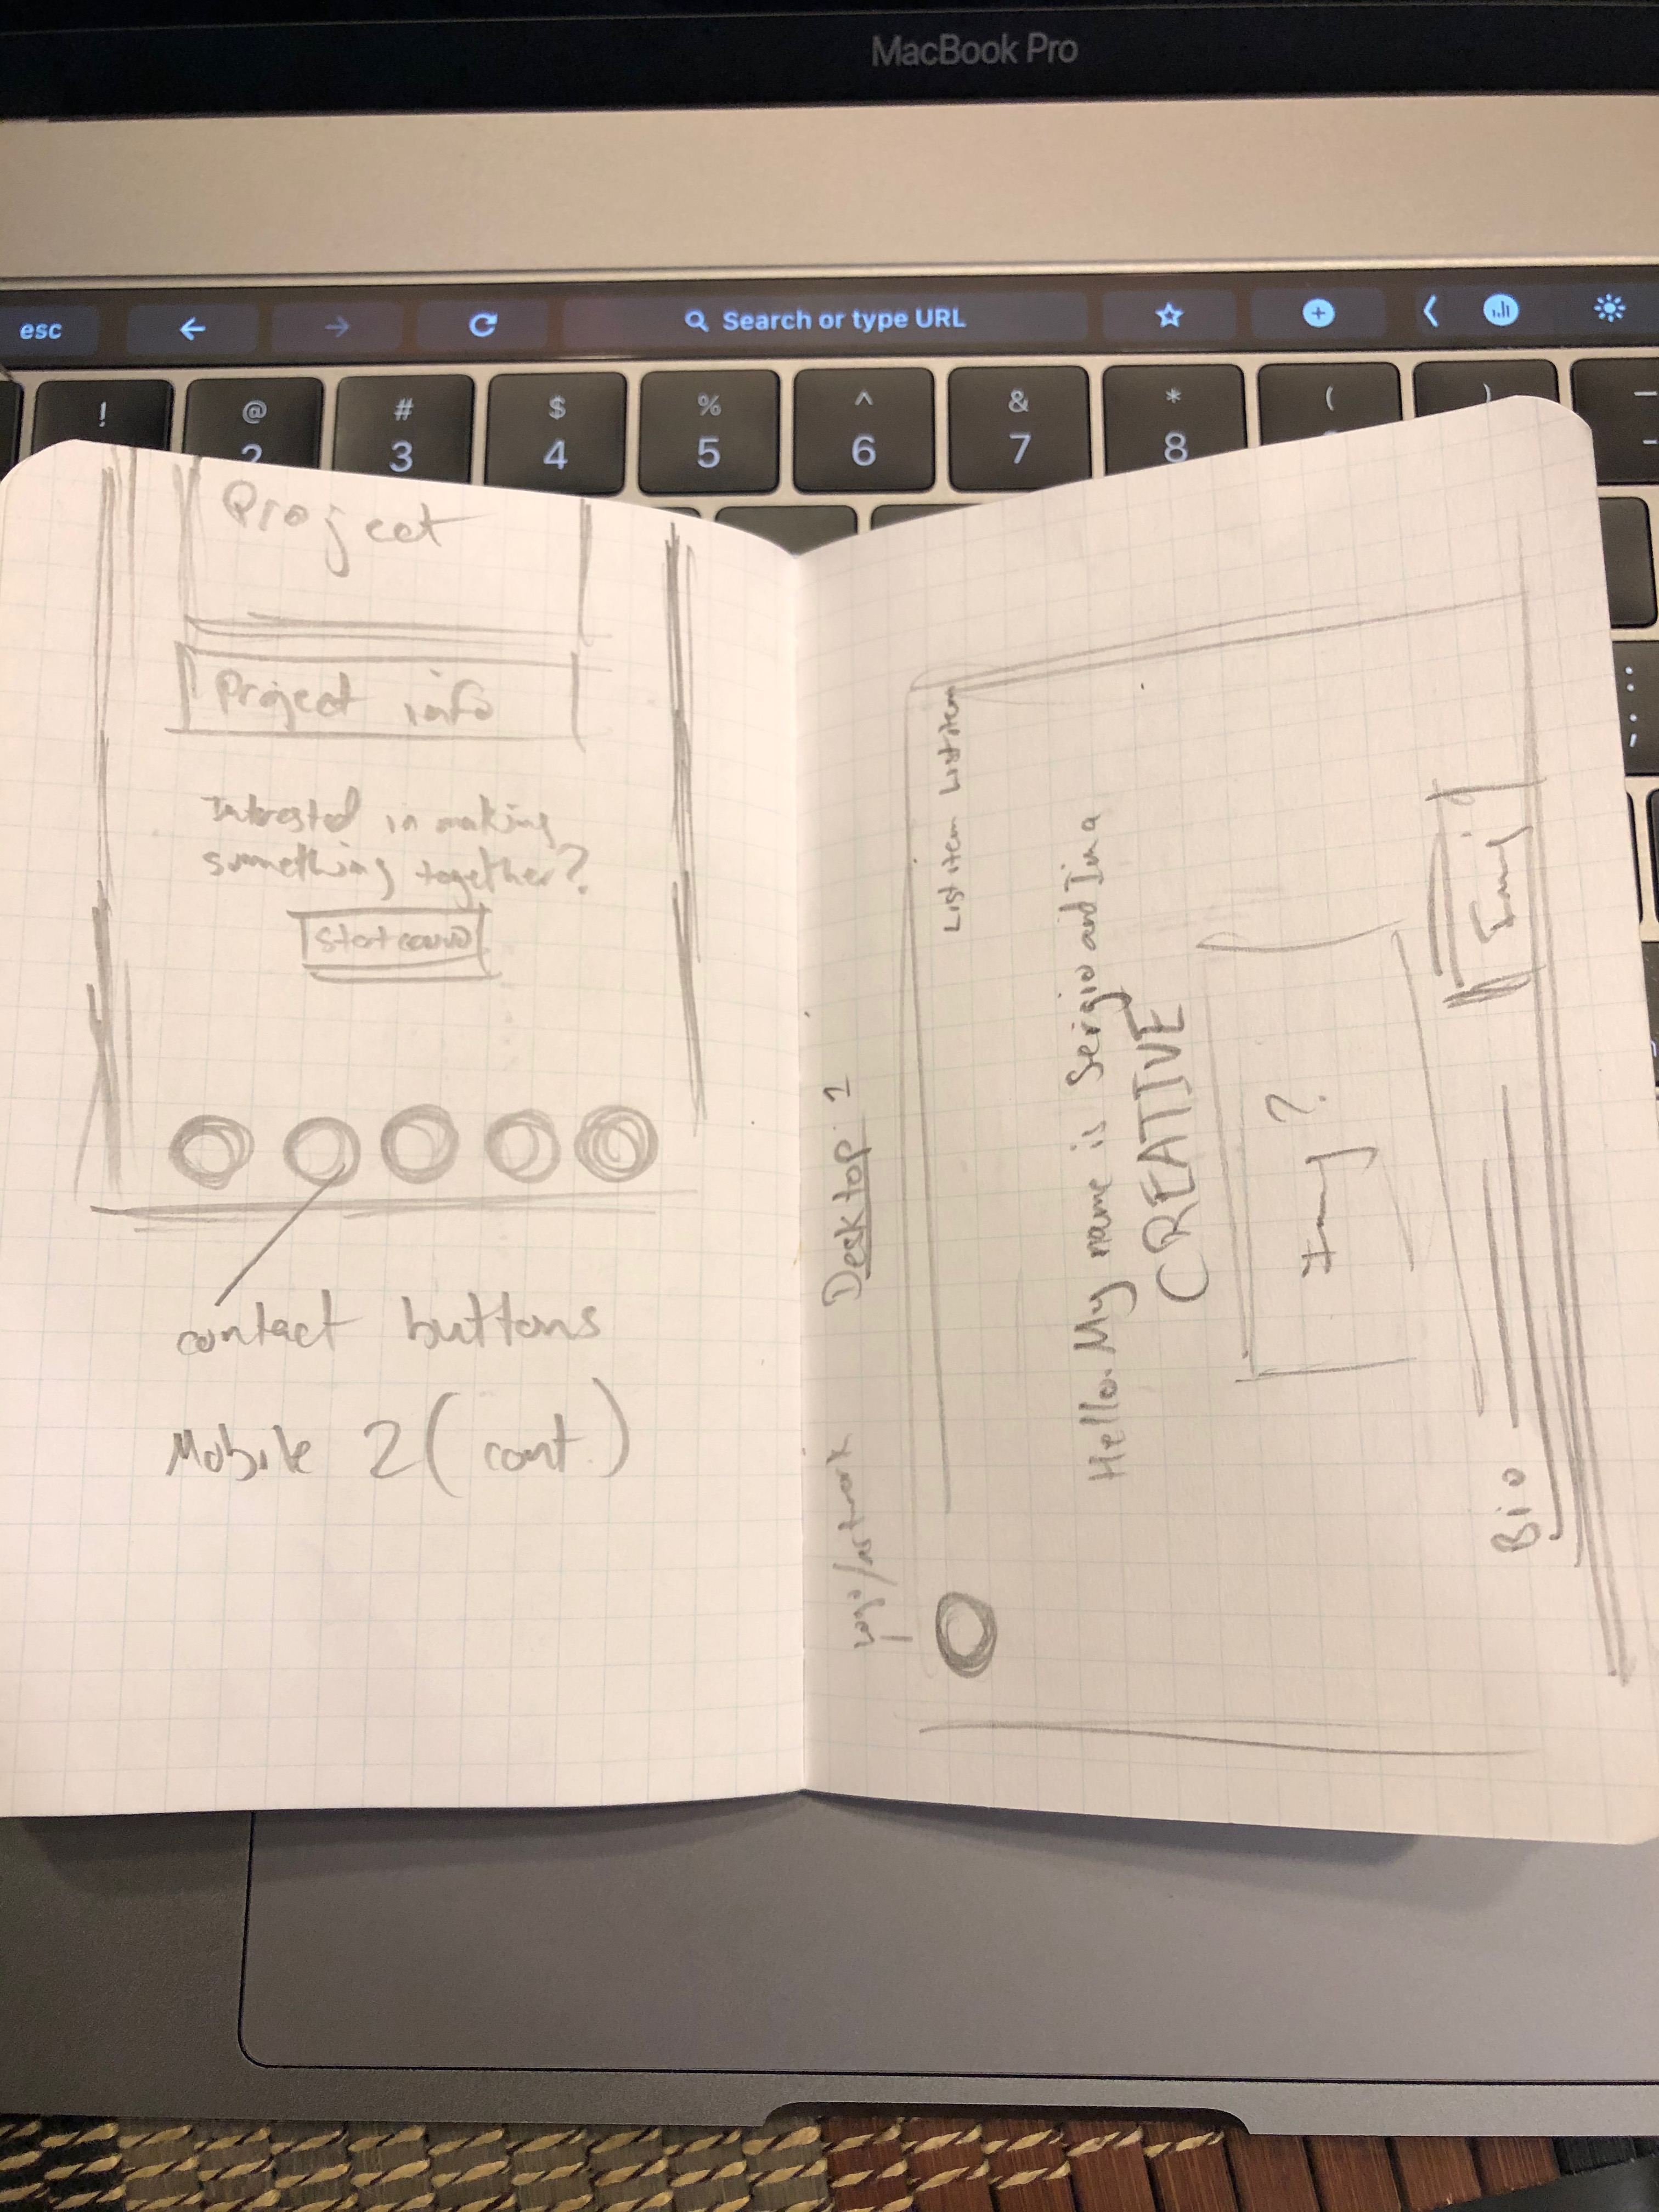 MacBook Pro
esc
Search or type URL
! @ # $ % ^ & * ( )
2 3 4 5 6 7 8
Project
Project info
Interested in making
something together?
contact buttons
Mobile 2 (cont.)
Desktop 1
logo/artwork
List item List item
Hello. My name is Sergio and I'm a
CREATIVE
?
Bio